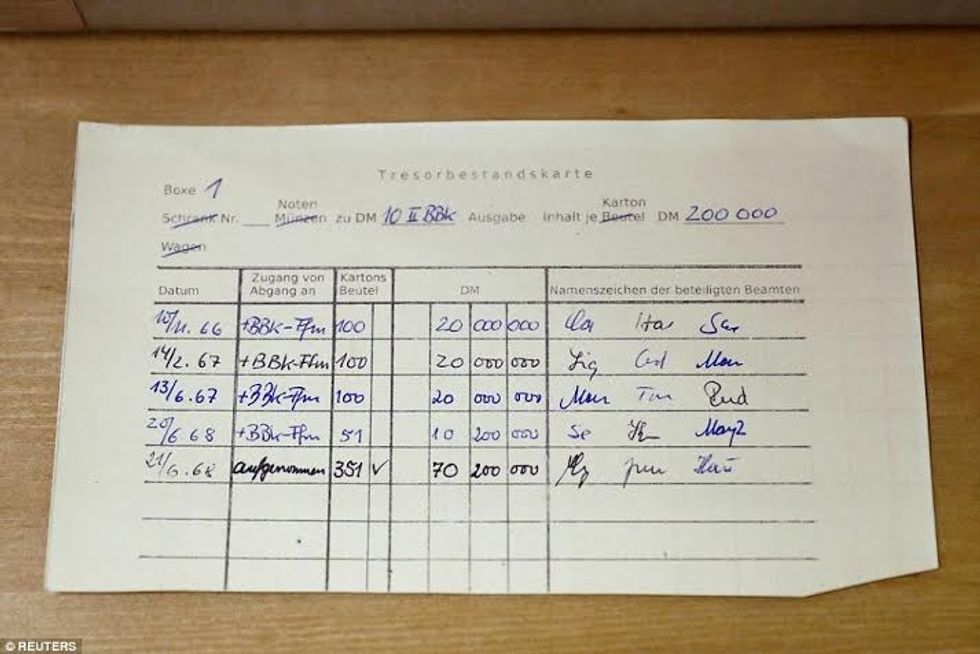 Tresorbestandskarte
Boxe 1
Noten Karton
Schrank Nr. Münzen zu DM 10 II BBk Ausgabe Inhalt je Beutel DM 200 000
Wagen
Zugang von Kartons
Datum Abgang an Beutel DM Namenszeichen der beteiligten Beamten
10/11. 66 +BBK-Ffm 100 20 000 000
14/2. 67 +BBK-Ffm 100 20 000 000
13/6.67 +BBK-Ffm 100 20 000 000
20/6 68 +BBK-Ffm 51 10 200 000
21/6.68 aufgenommen 351 √ 70 200 000
© REUTERS